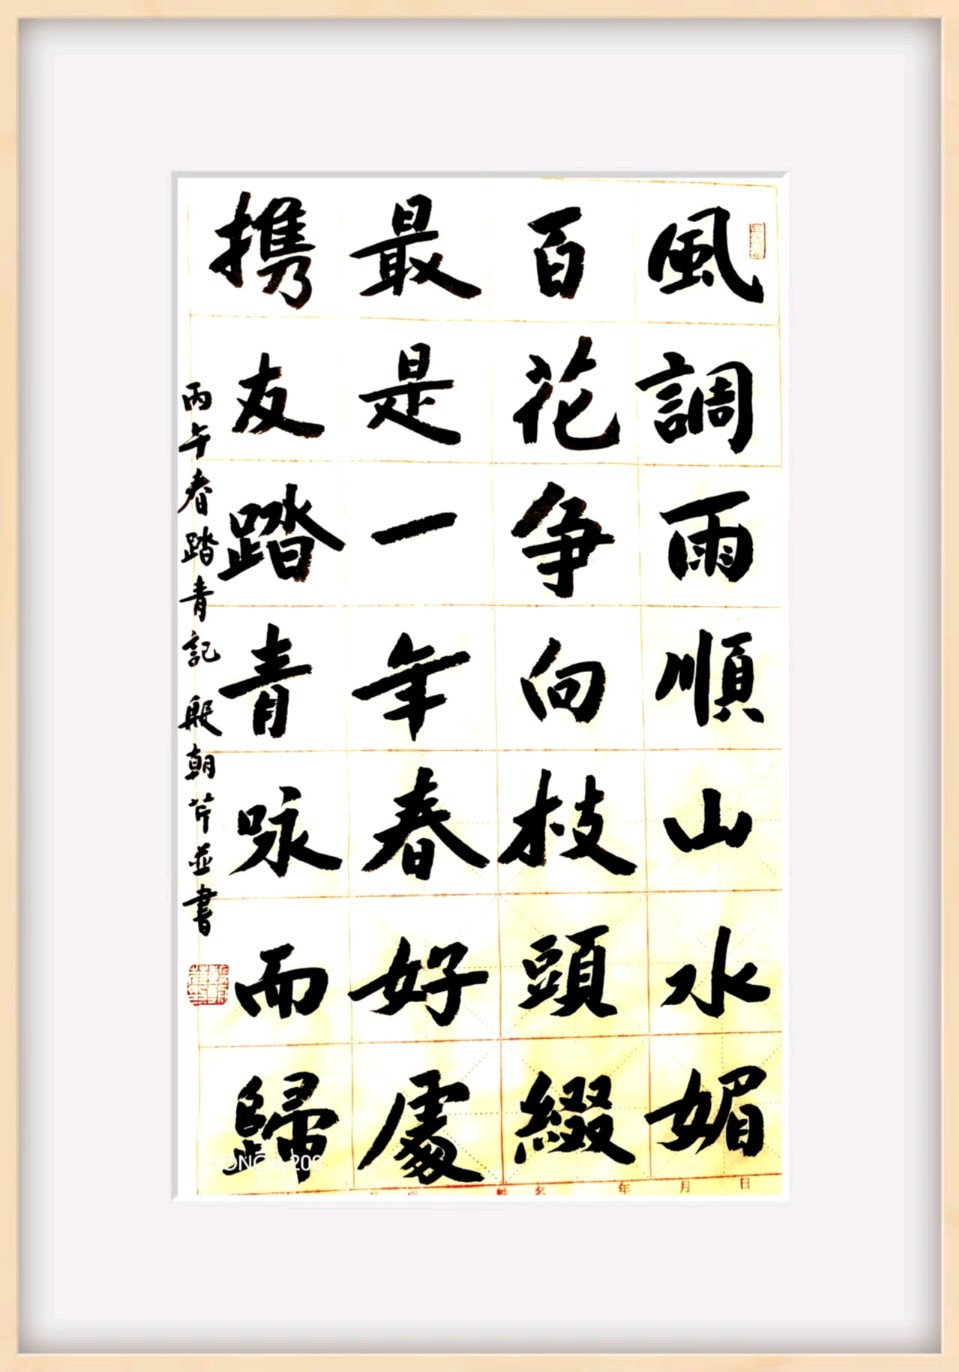 風調雨順山水媚
百花争向枝頭綴
最是一年春好處
携友踏青咏而歸
丙午春踏青記 殷朝芹並書
年 月 日